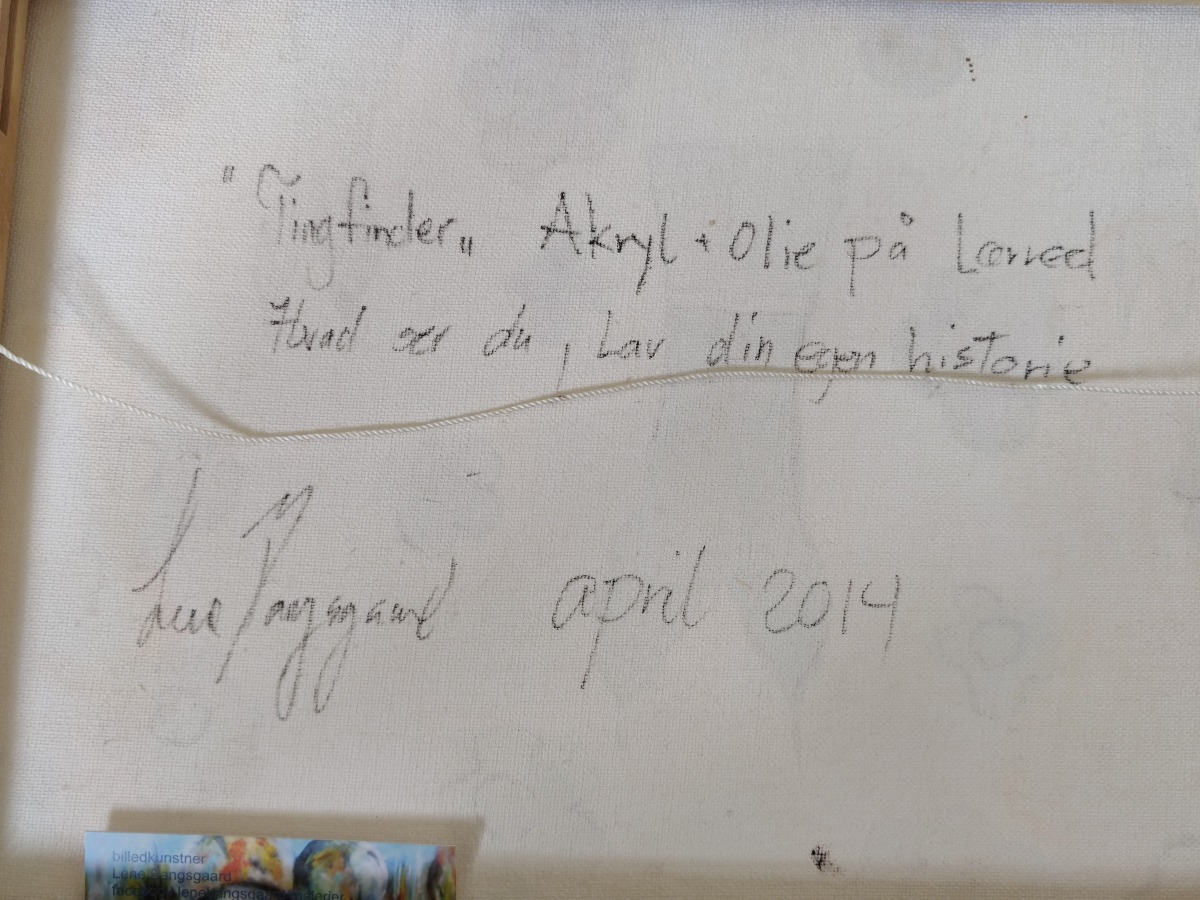 "Tingfinder" Akryl + Olie på Lærred
Hvad ser du, Lav din egen historie
Lene Bangsgaard april 2014
billedkunstner
Lene Bangsgaard